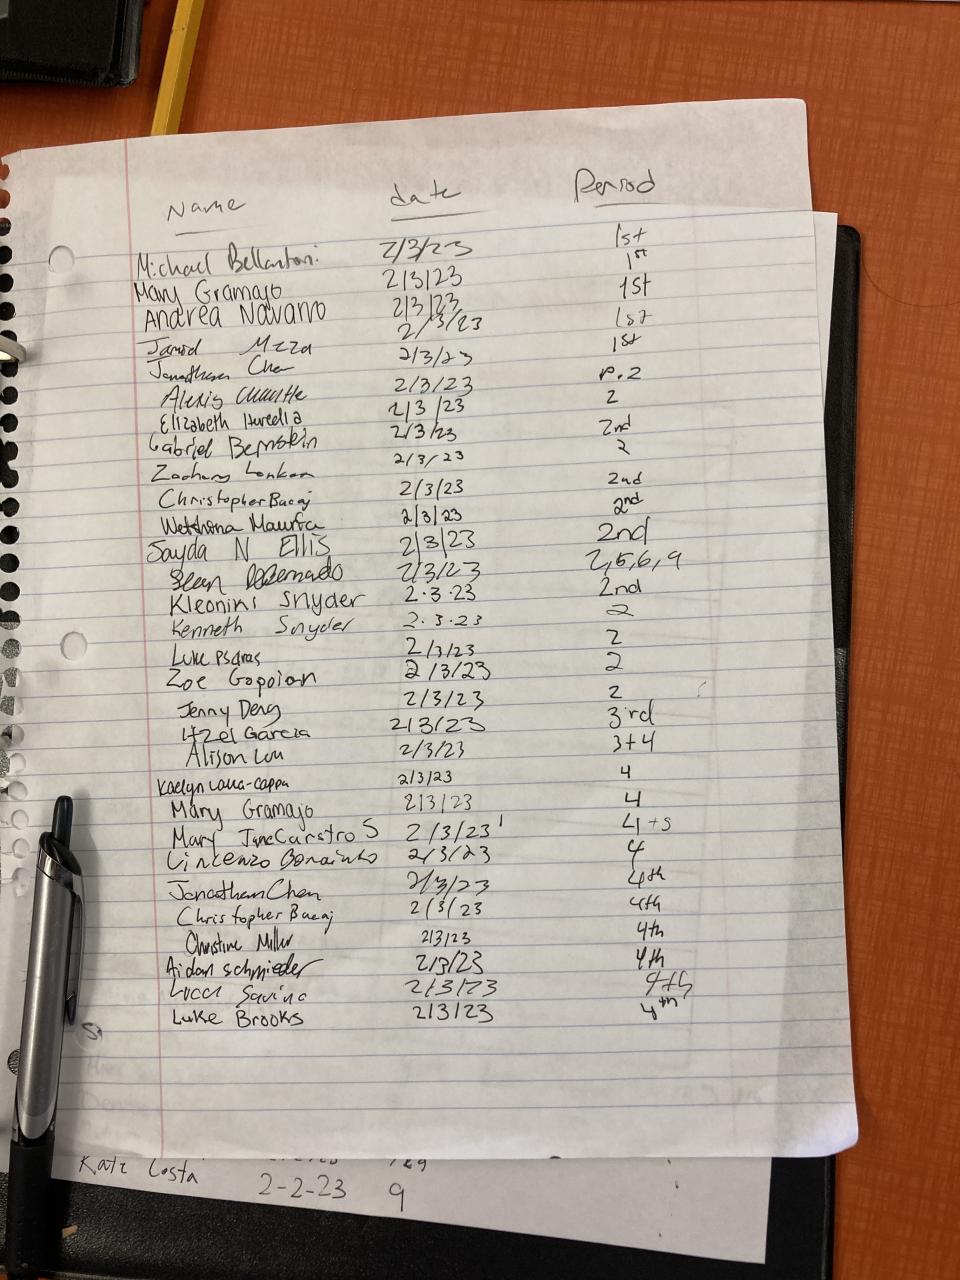 Name date Period
Michael Bellantoni 2/3/23 1st
Mary Gramajo 2/3/23 1st
Andrea Navarro 2/3/23 1st
Jarrod 2/3/23 1st
Jonathan Chen 2/3/23 1st
Alexis 2/3/23 P.2
Elizabeth Heredia 2/3/23 2
Gabriel Bernstein 2/3/23 2nd
Zachary 2/3/23 2
Christopher Bacaj 2/3/23 2nd
Maurica 2/3/23 2nd
Sayda N Ellis 2/3/23 2nd
Sean 2/3/23 2,5,6,9
Kleoniki Snyder 2.3.23 2nd
Kenneth Snyder 2.3.23 2
Luke Psaras 2/3/23 2
Zoe Gopoian 2/3/23 2
Jenny Deng 2/3/23 2
Itzel Garcia 2/3/23 3rd
Alison Lou 2/3/23 3+4
Kaelyn 2/3/23 4
Mary Gramajo 2/3/23 4
Mary Jane Carstro S 2/3/23 4+5
Vincenzo 2/3/23 4
Jonathan Chen 2/3/23 4th
Christopher Bacaj 2/3/23 4th
Christine Miller 2/3/23 4th
Aidan Schmieder 2/3/23 4th
Lucca Savino 2/3/23
Luke Brooks 2/3/23 4th
Kate Costa
2-2-23 9